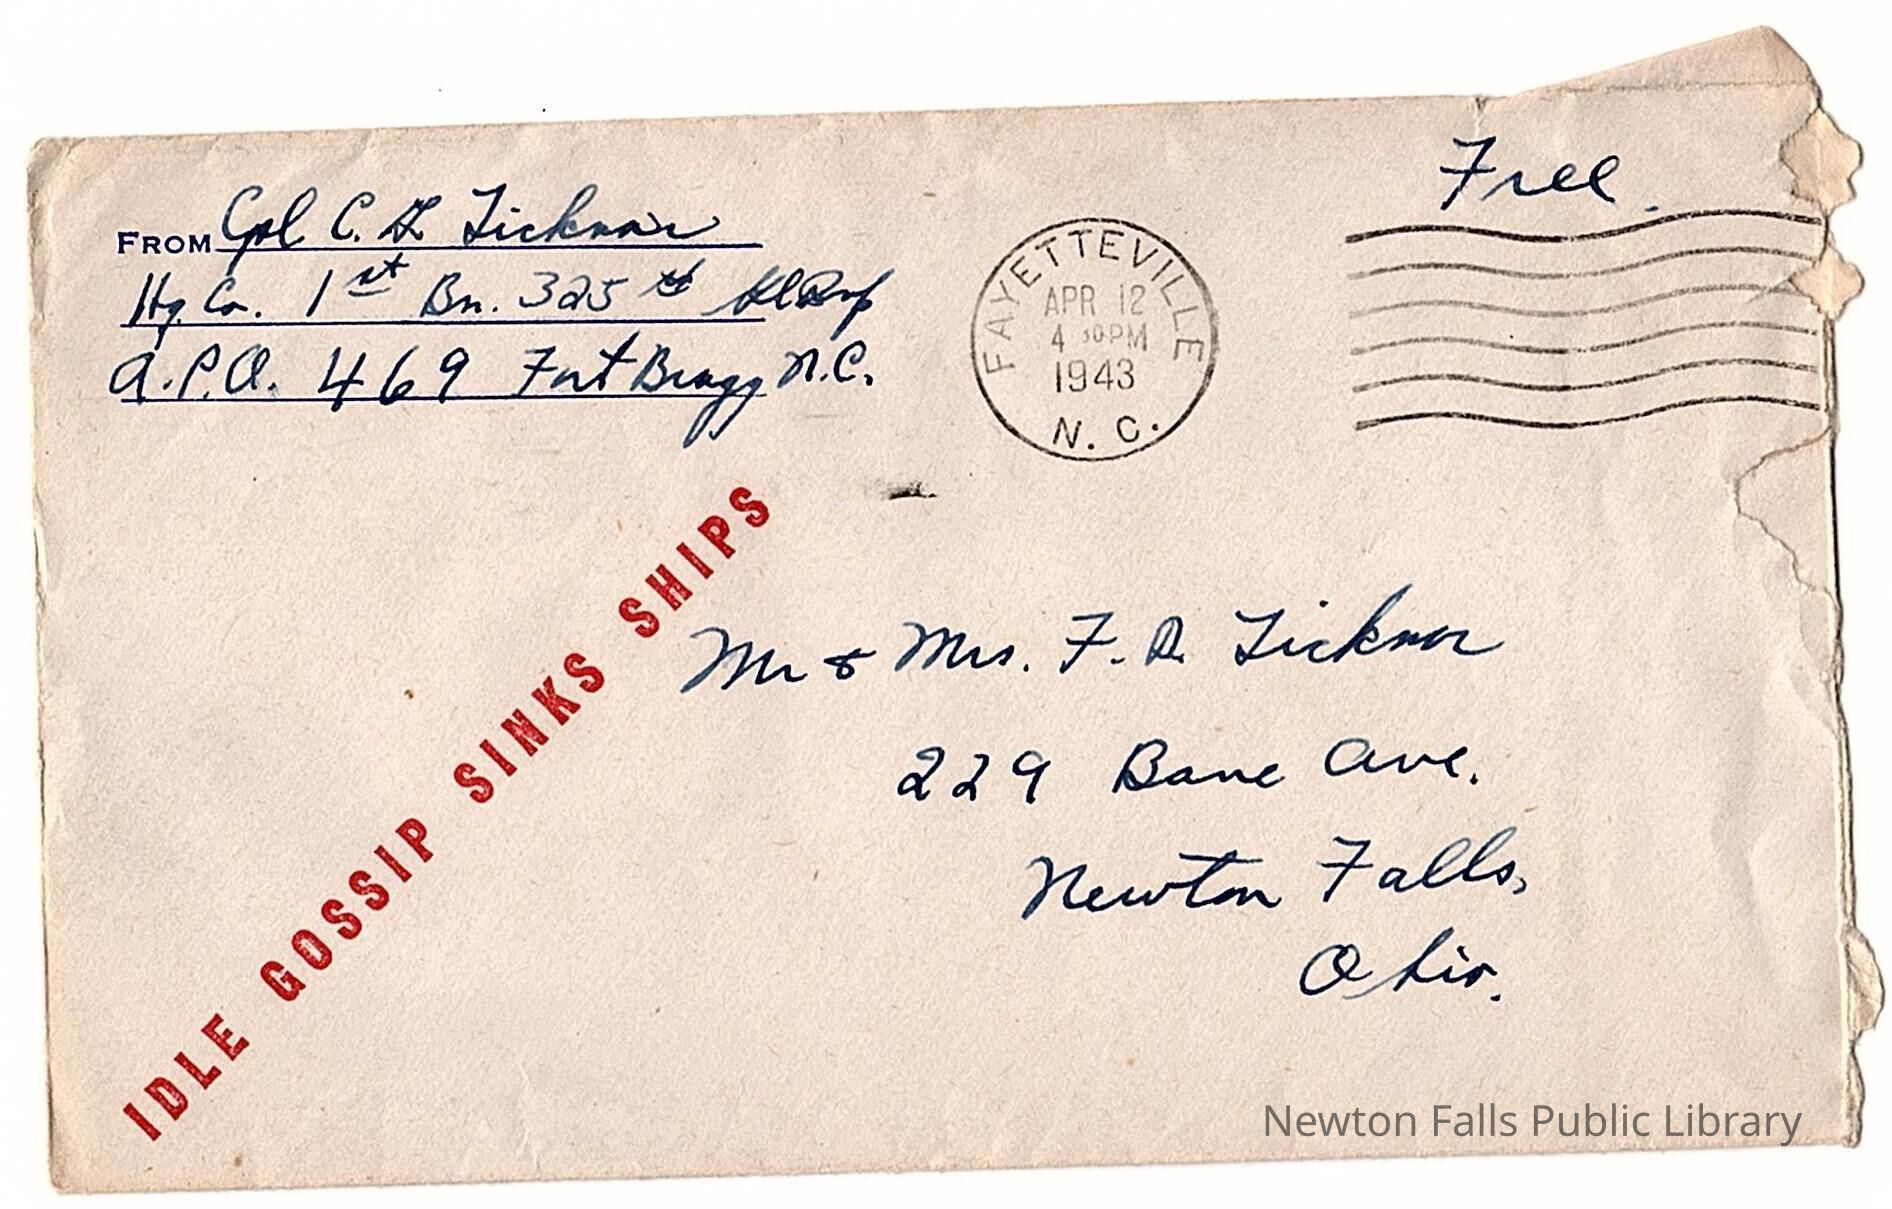 FROM Cpl C. L Ticknor
Hq. Co. 1st Bn. 325th
A.P.O. 469 Fort Bragg N.C.
FAYETTEVILLE
APR 12
4 30 PM
1943
N. C.
Free.
IDLE GOSSIP SINKS SHIPS
Mr & Mrs. F. D. Ticknor
229 Bane Ave.
Newton Falls,
Ohio.
Newton Falls Public Library